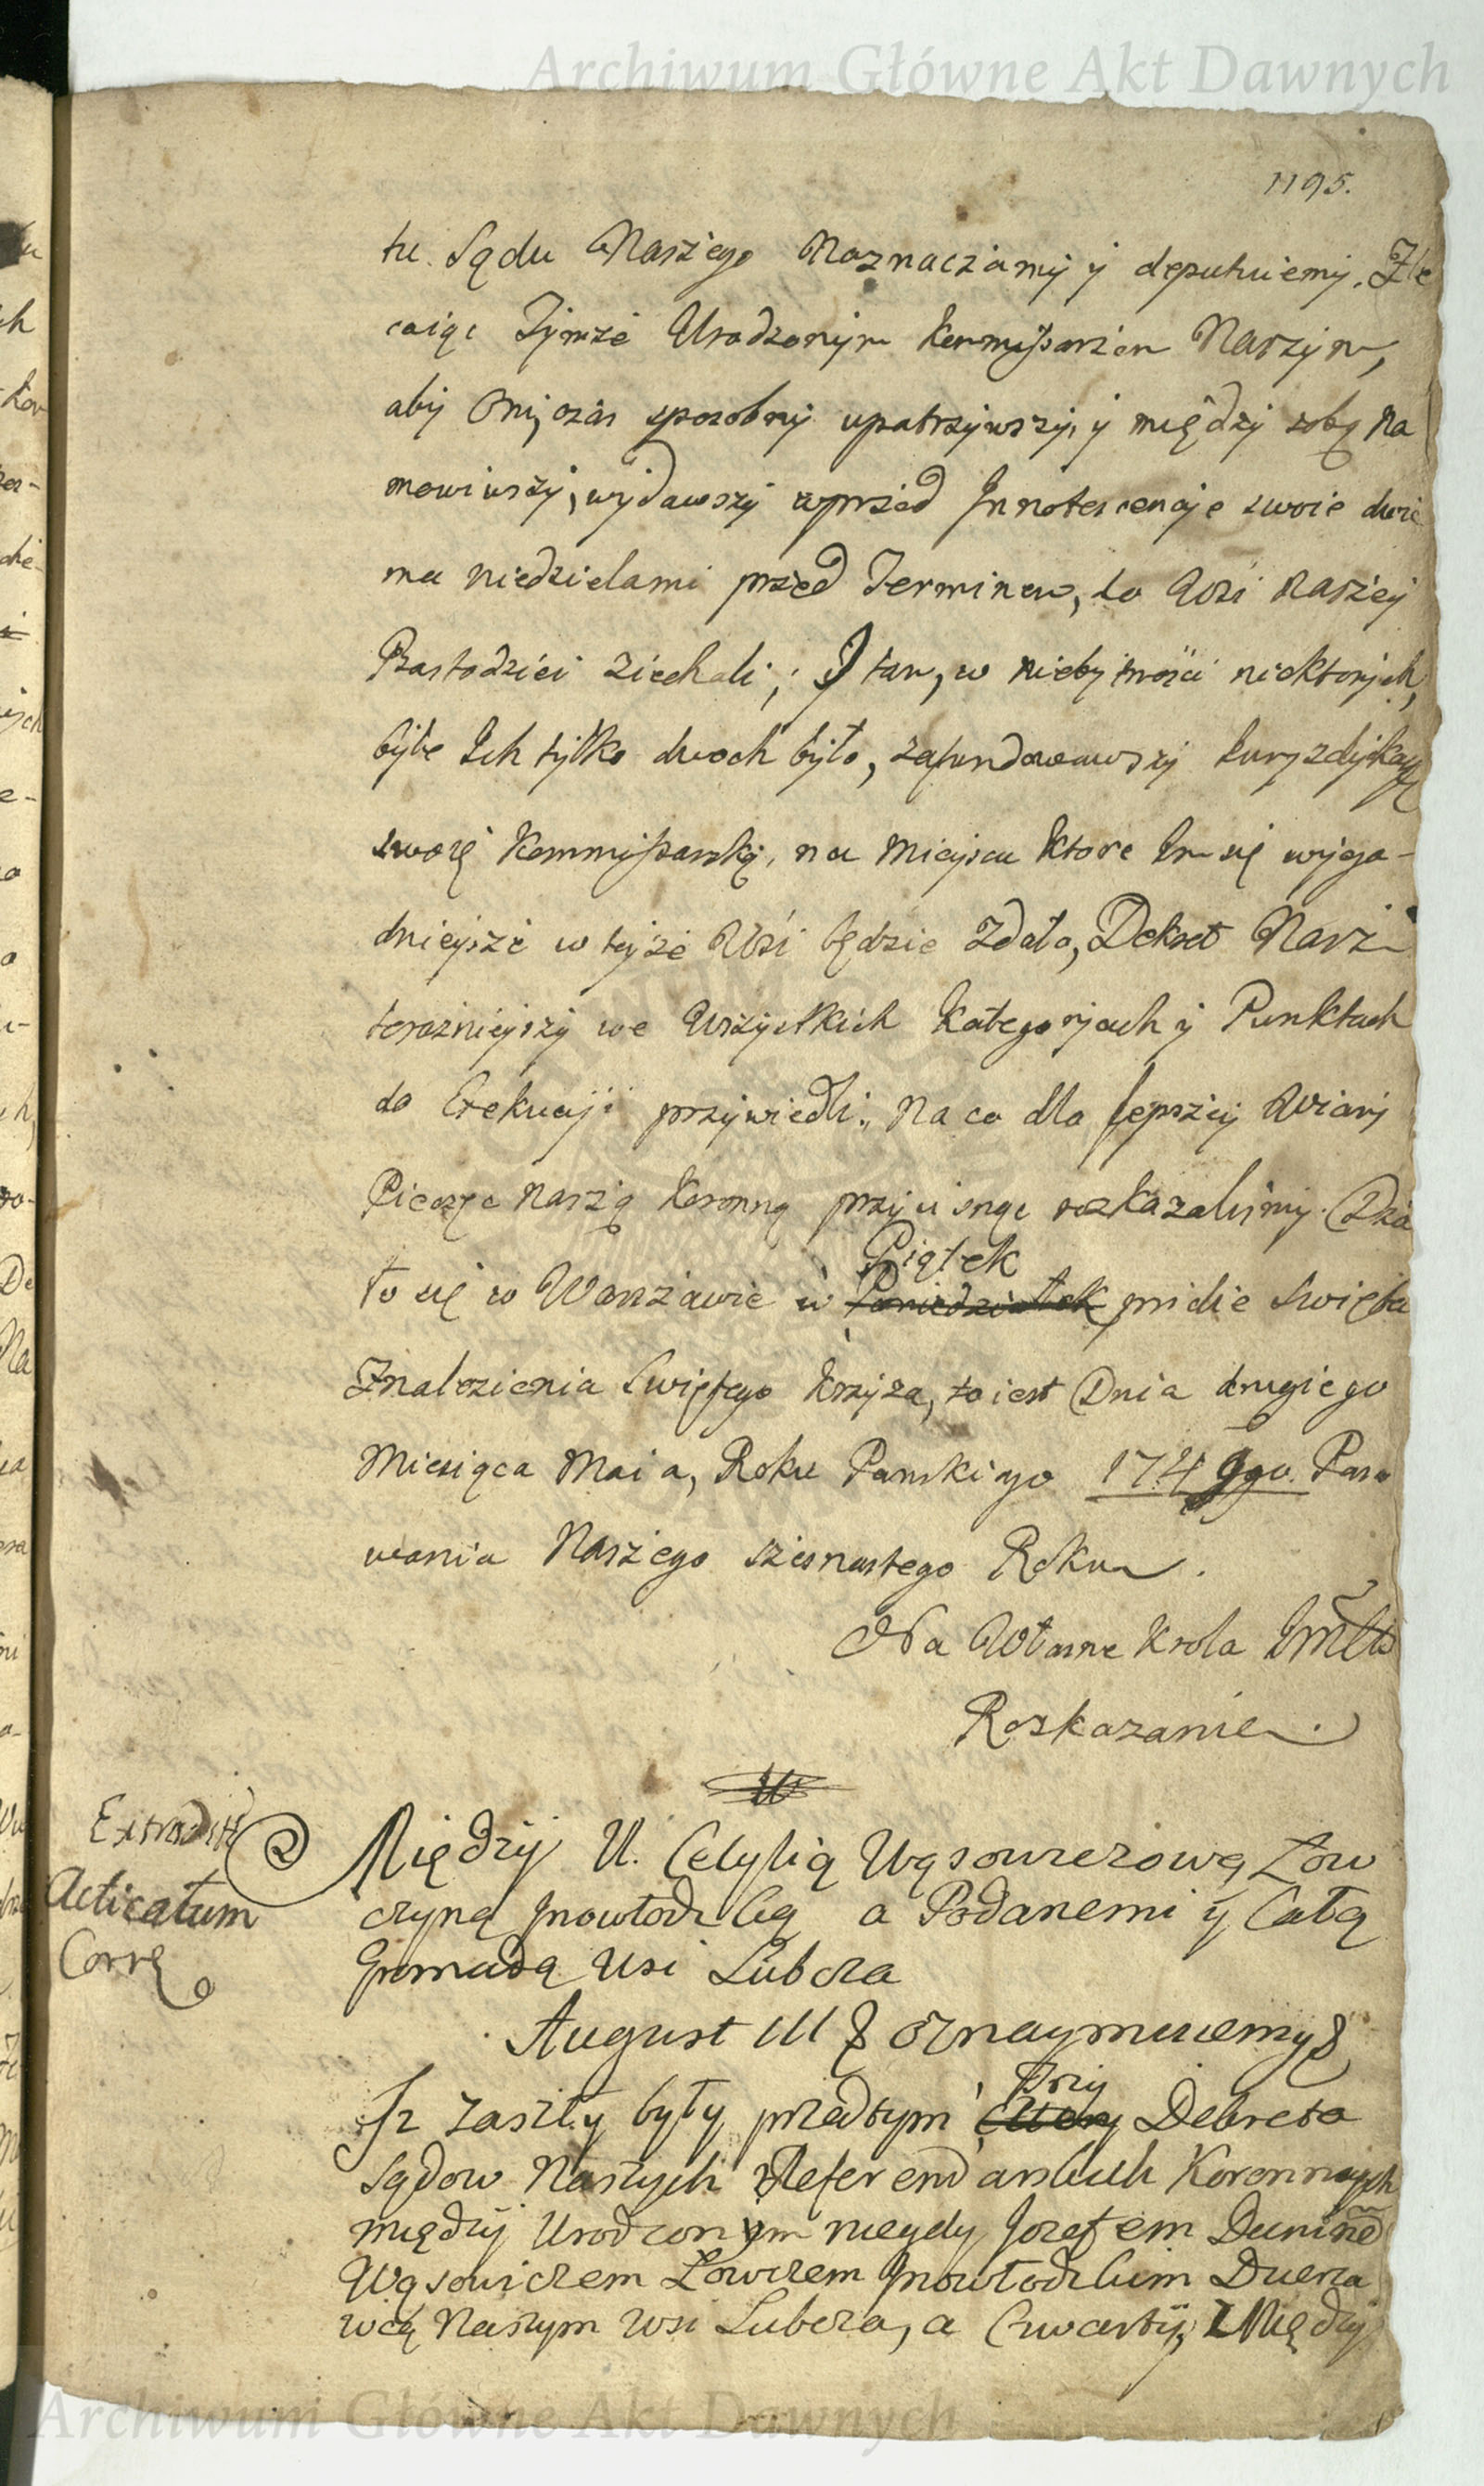 Archiwum Główne Akt Dawnych
1195.
tu Sądu Naszego Naznaczamy y deputuiemy. Zle
caiąc Tymże Urodzonym Kommissarzom Naszym,
aby Oni, czas sposobny upatrzywszy, y między sobą na
mowiwszy, wydawszy wprzod Innotescencje swoie dwie
ma niedzielami przed Terminem, do Wsi naszey
Ziechali; y tam, w niebytności niektorych,
byle Ich tylko dwoch było, zafundowawszy Juryzdykcyą
swoię Kommissarską, na Mieyscu ktore Im się wyga-
dnieysze w teyże Wsi będzie Zdało, Dekret Nasz
teraznieyszy we Wszystkich Kategoryach y Punktach
do Exekucyi przywiedli; Na co dla lepszey Wiary
Pieczęc naszą Koronną przycisnąc rozkazalismy. Dzia
Piątek
ło się w Warszawie w Poniedziałek pridie Swięta
Znalezienia Swiętego Krzyża, to iest Dnia drugiego
Miesiąca Maia, Roku Panskiego 1749go. Pano
wania Naszego szesnastego Roku.
Na Własne Krola JMCi
Rozkazanie.
Extradit
Acticatum
Corr
Między U. Cecylią Wąsowiczową Łow
czyną Inowłodz Cą a Podanemi y Całą
Gromadą Wsi Lubcza
August III & oznaymuiemy &
Trzy
Iz zaszły były przedtym cztery Dekreta
Sądow Naszych Referendarskich Koronnych
między Urodzonym niegdy Jozefem Duninẽ
Wąsowiczem Łowczem Inowłodzkim Dzierza
wcą Naszym Wsi Lubcza, a Czwarty, Między
Archiwum Główne Akt Dawnych